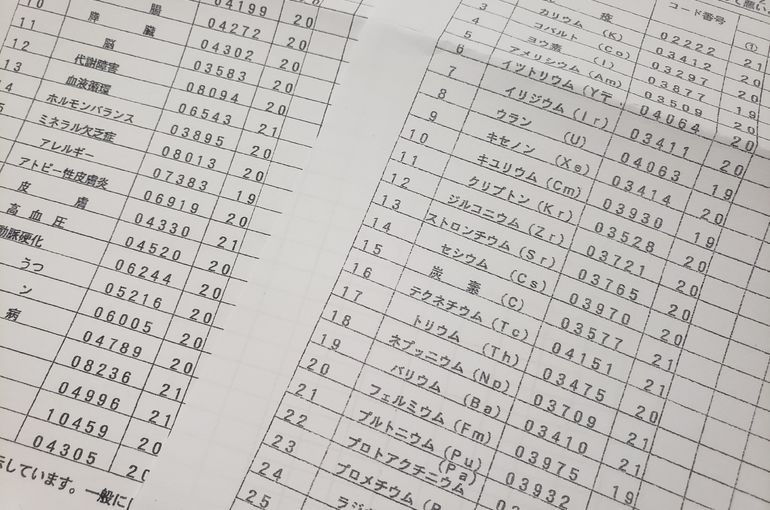 10 腸 04199 20
11 膵 臓 04272 20
12 脳 04302 20
13 代謝障害 03583 20
血液循環 08094 20
ホルモンバランス 06543 21
ミネラル欠乏症 03895 20
アレルギー 08013 20
アトピー性皮膚炎 07383 19
皮 膚 06919 20
高 血 圧 04330 21
動脈硬化 04520 20
うつ 06244 20
ン 05216 20
病 06005 20
04789 20
08236 21
04996 21
10459 20
04305 20
しています。一般に
コード番号 ①
疫 02222 21
3 カリウム (K) 03412 20
4 コバルト (Co) 03297 20
5 ヨウ素 (I) 03877 19
6 アメリシウム (Am) 03509 20
7 イットリウム (Y 04064 20
8 イリジウム (Ir) 03411 20
9 ウラン (U) 04063 19
10 キセノン (Xe) 03414 20
11 キュリウム (Cm) 03930 19
12 クリプトン (Kr) 03528 20
13 ジルコニウム (Zr) 03721 20
14 ストロンチウム (Sr) 03765 20
15 セシウム (Cs) 03970 20
16 炭 素 (C) 03577 21
17 テクネチウム (Tc) 04151 21
18 トリウム (Th) 03475 20
19 ネプツニウム (Np) 03709 21
20 バリウム (Ba) 03410 21
21 フェルミウム (Fm) 03975 19
22 プルトニウム (Pu) 03932
23 プロトアクチニウム (Pa)
24 プロメチウム
25 ラジ